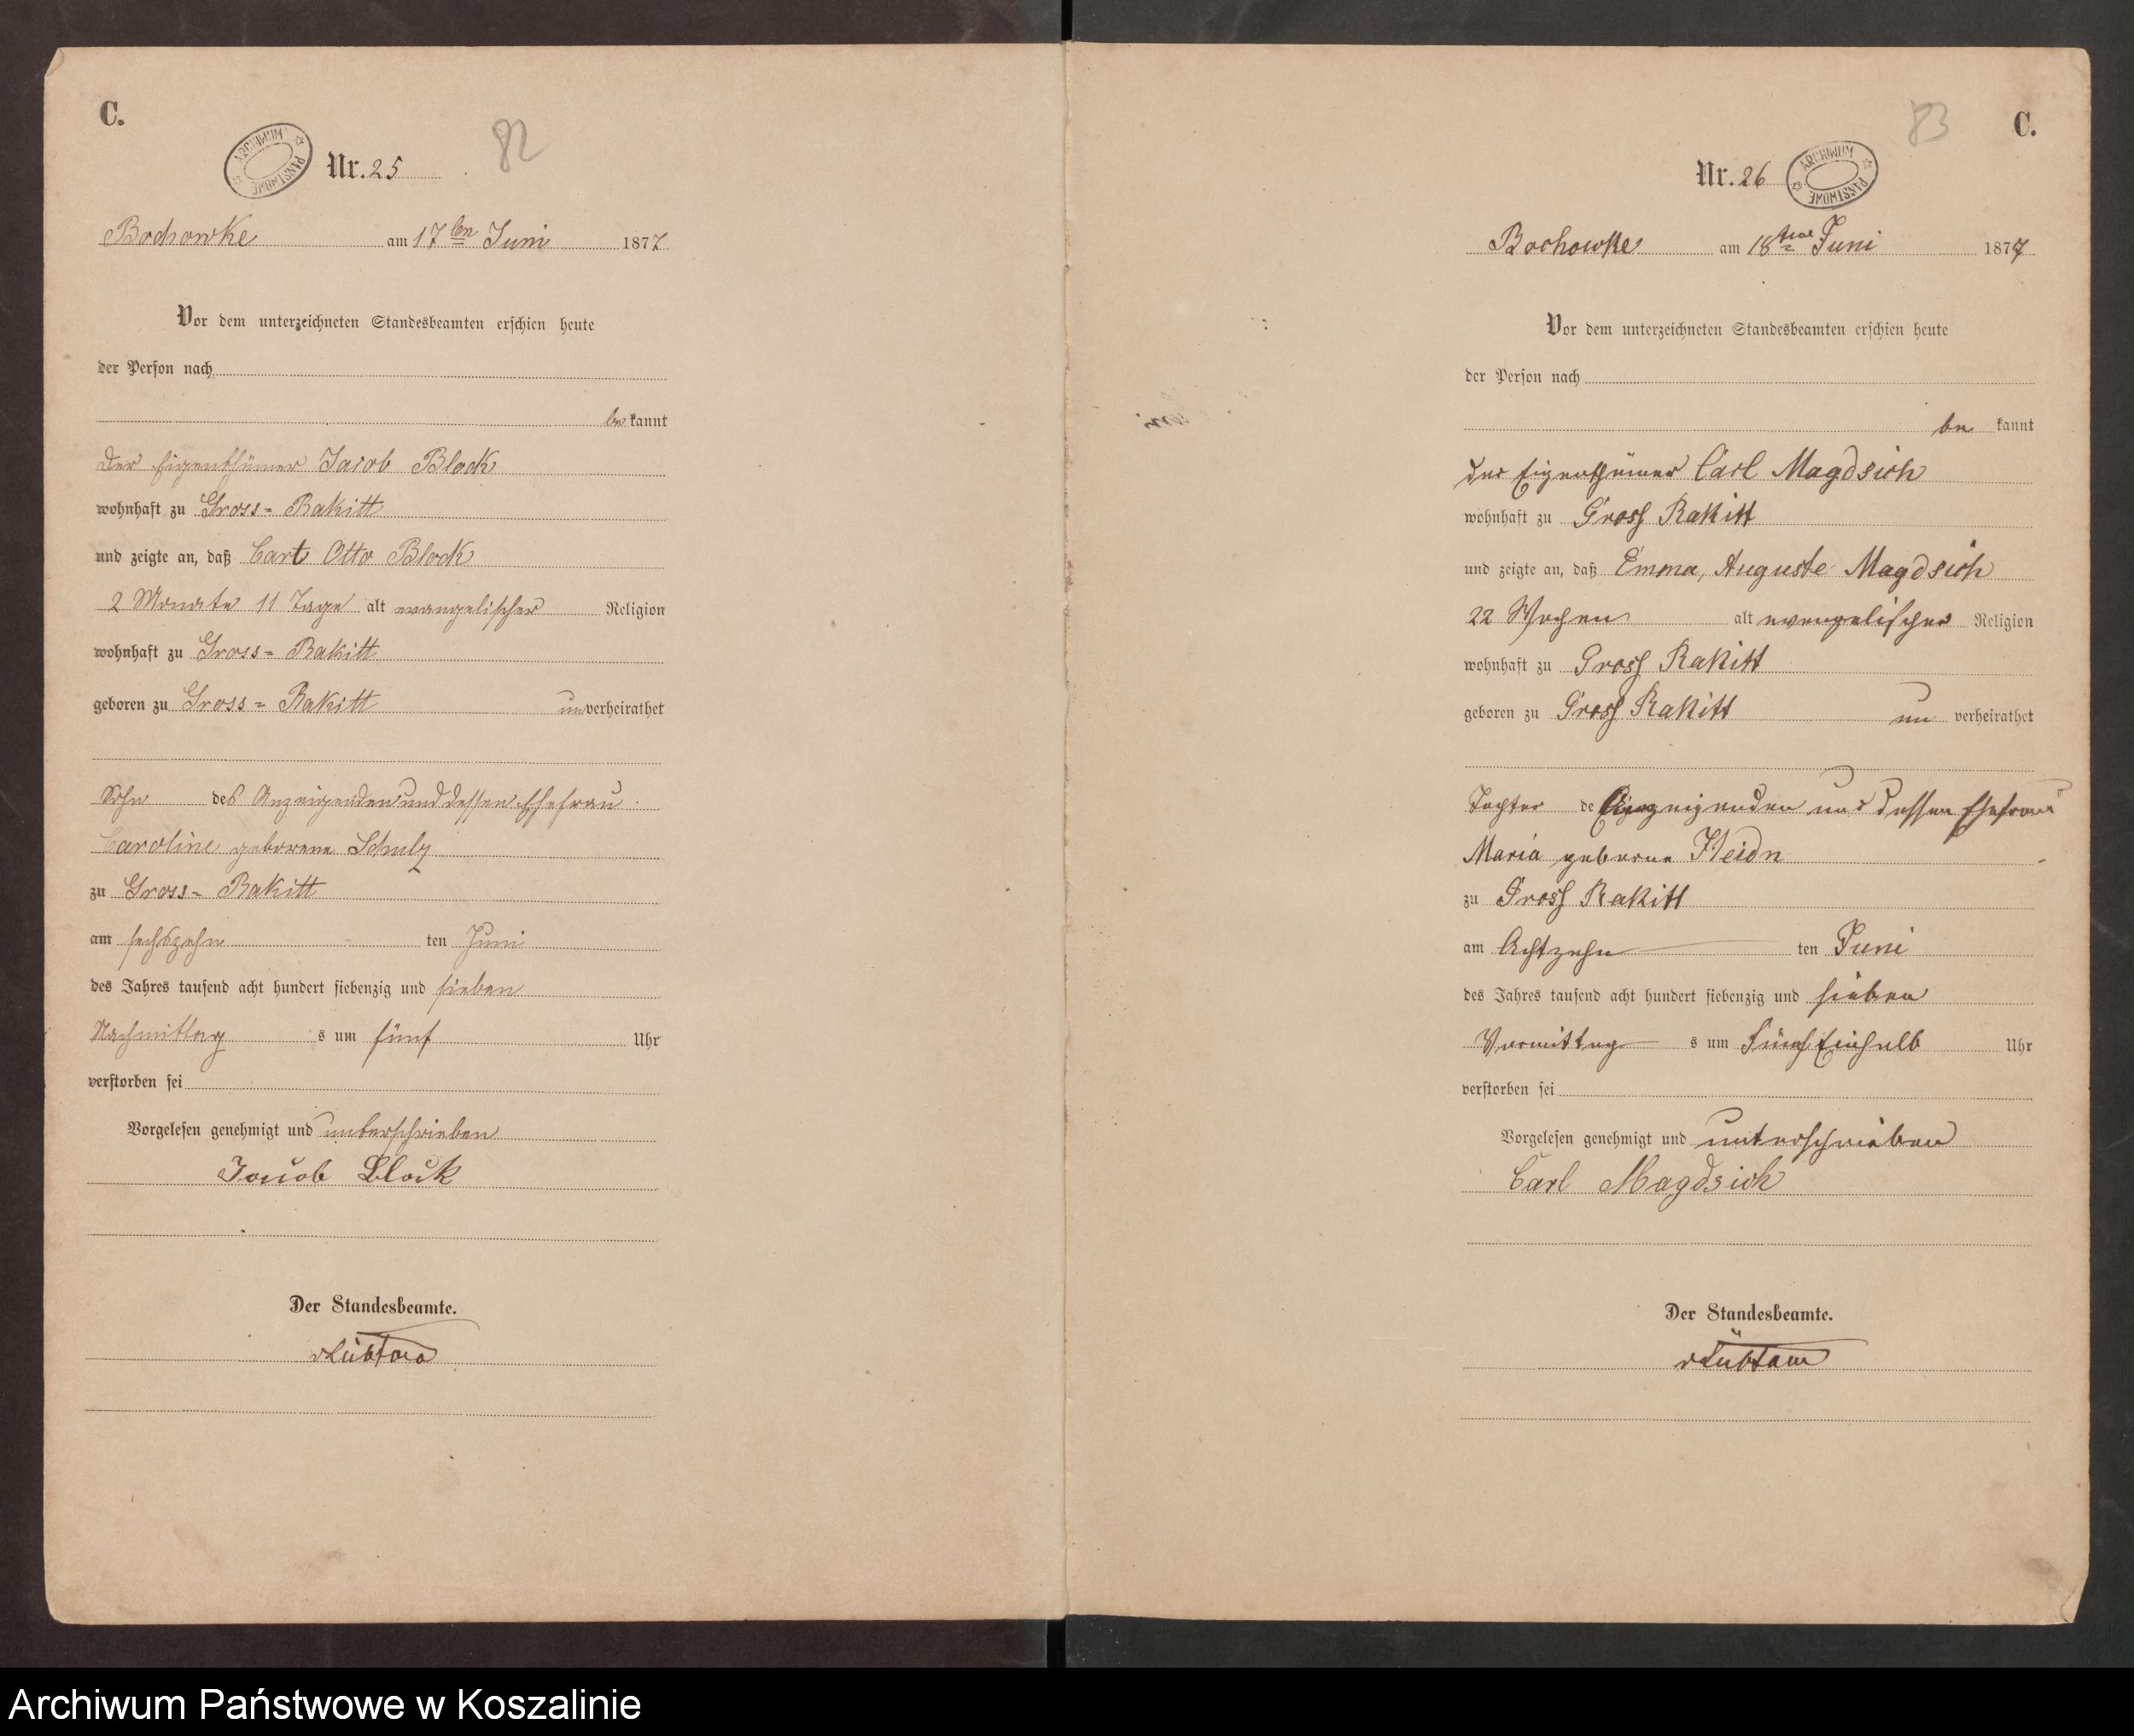 C.
82
ARCHIWUM PAŃSTWOWE
Nr. 25
Bochowke am 17ten Juni 1877
Vor dem unterzeichneten Standesbeamten erschien heute
der Person nach
bekannt
der Eigenthümer Jacob Block
wohnhaft zu Gross-Rakitt
und zeigte an, daß Carl Otto Block
2 Monate 11 Tage alt evangelischer Religion
wohnhaft zu Gross-Rakitt
geboren zu Gross-Rakitt unverheirathet
Sohn des Anzeigenden und dessen Ehefrau
Caroline geborene Schulz
zu Gross-Rakitt
am sechszehn ten Juni
des Jahres tausend acht hundert siebenzig und sieben
Nachmittag s um fünf Uhr
verstorben sei
Vorgelesen genehmigt und unterschrieben
Jacob Block
Der Standesbeamte.
C.
83
Nr. 26
ARCHIWUM PAŃSTWOWE
Bochowke am 18ten Juni 1877
Vor dem unterzeichneten Standesbeamten erschien heute
der Person nach
be kannt
der Eigenthümer Carl Magdsich
wohnhaft zu Gross Rakitt
und zeigte an, daß Emma, Auguste Magdsich
22 Wochen alt evangelischer Religion
wohnhaft zu Gross Rakitt
geboren zu Gross Rakitt un verheirathet
Tochter de Anzeigenden und dessen Ehefrau
Maria geborne
zu Gross Rakitt
am Achtzehn ten Juni
des Jahres tausend acht hundert siebenzig und sieben
Vormittag s um Fünf Einhalb Uhr
verstorben sei
Vorgelesen genehmigt und unterschrieben
Carl Magdsich
Der Standesbeamte.
Archiwum Państwowe w Koszalinie